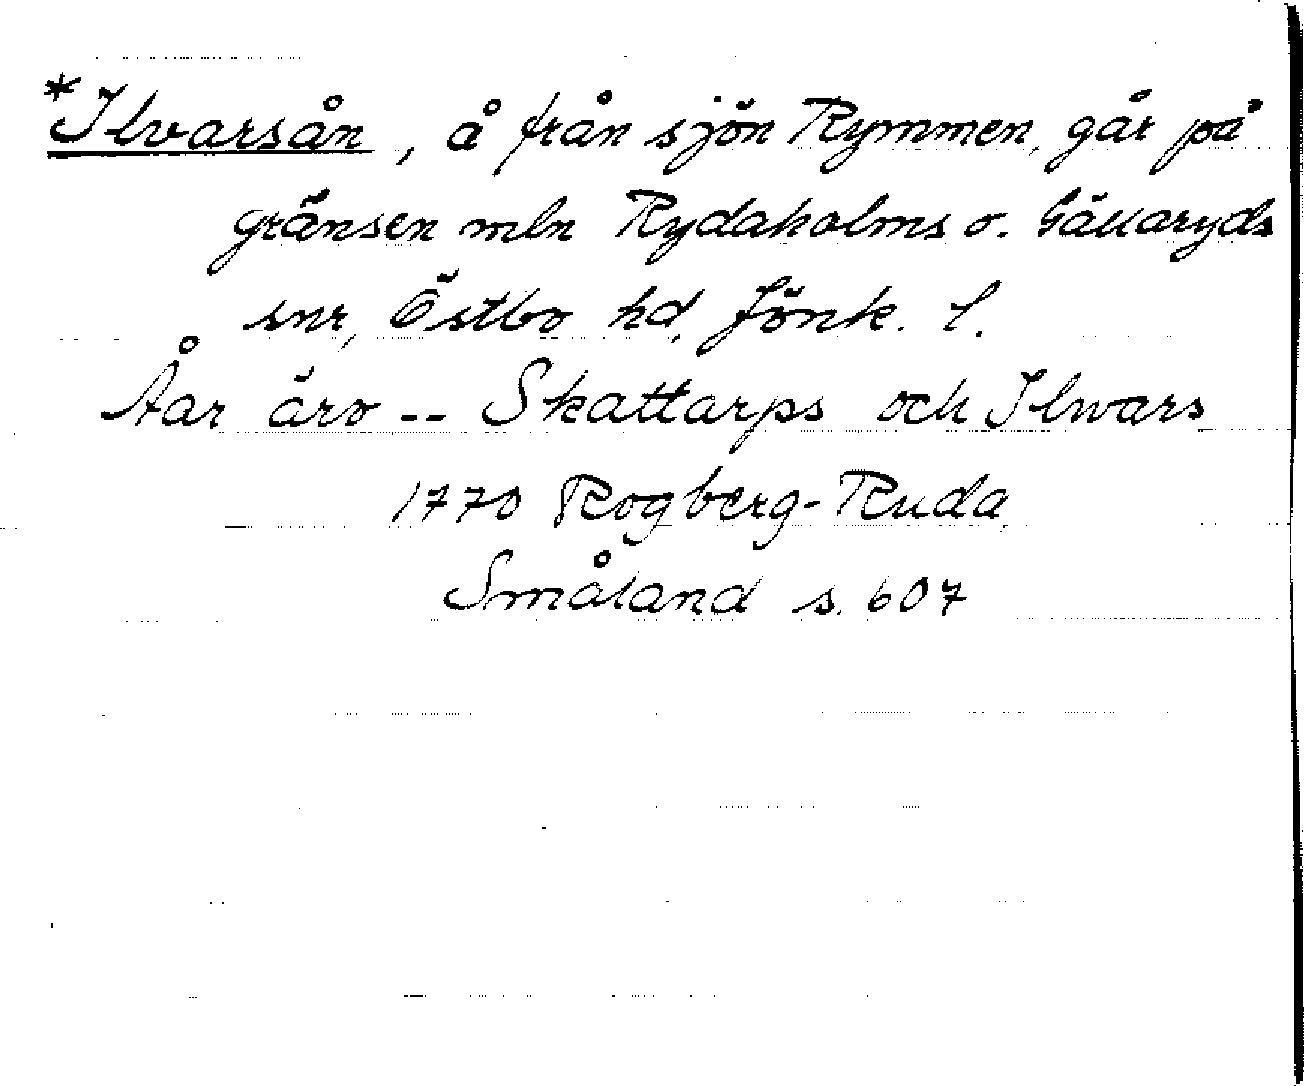 *Ilvarsån, å från sjön Rymmen, går på
gränsen mln Rydaholms o. Gällaryds
snr, Östbo hd, Jönk. l.
Åar äro -- Skattarps och Ilwars
1770 Rogberg-Ruda
Småland s. 607